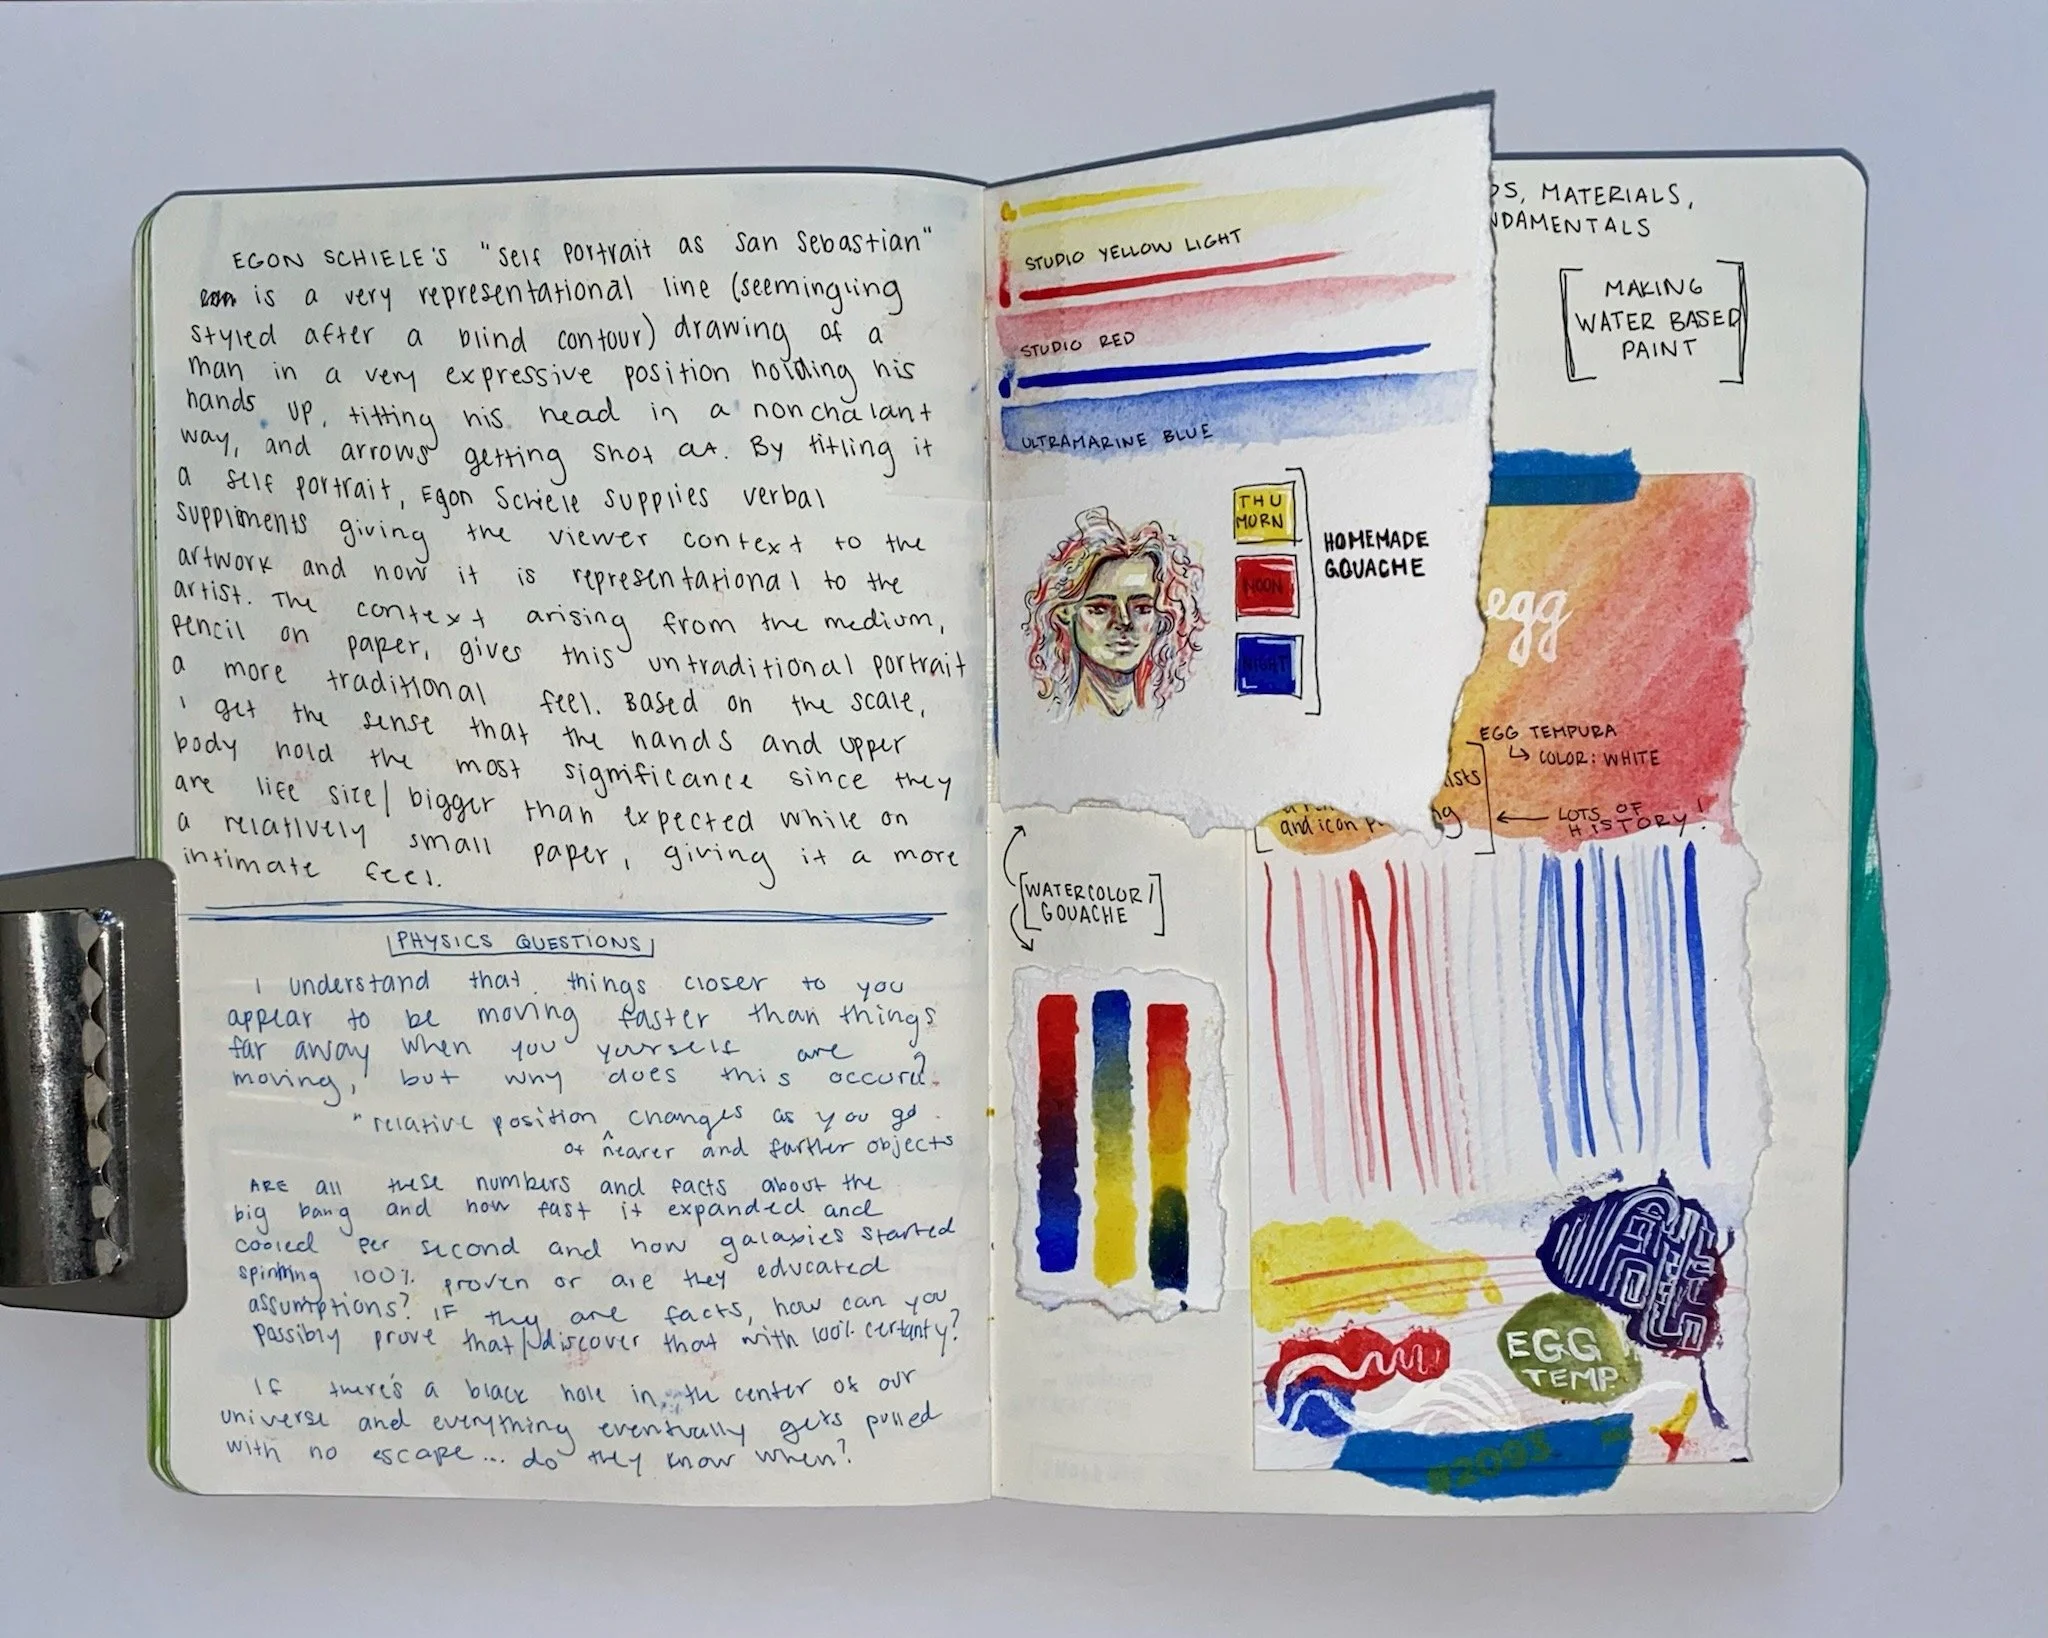 EGON SCHIELE'S "Self portrait as San Sebastian"
is a very representational line (seemingling
styled after a blind contour) drawing of a
man in a very expressive position holding his
hands up, titting his head in a nonchalant
way, and arrows getting shot at. By titling it
a self portrait, Egon Schiele supplies verbal
suppliments giving the viewer context to the
artwork and now it is representational to the
artist. The context arising from the medium,
pencil on paper, gives this untraditional portrait
a more traditional feel. Based on the scale,
I get the sense that the hands and upper
body hold the most significance since they
are life size/bigger than expected while on
a relatively small paper, giving it a more
intimate feel.
PHYSICS QUESTIONS
I understand that things closer to you
appear to be moving faster than things
far away when you yourself are
moving, but why does this occur?
"relative position changes as you go
of nearer and farther objects
ARE all these numbers and facts about the
big bang and how fast it expanded and
cooled per second and how galaxies started
spinning 100% proven or are they educated
assumptions? IF they are facts, how can you
possibly prove that/discover that with 100% certanty?
If there's a black hole in the center of our
universe and everything eventually gets pulled
with no escape... do they know when?
STUDIO YELLOW LIGHT
STUDIO RED
ULTRAMARINE BLUE
THU
MORN
NOON
NIGHT
HOMEMADE
GOUACHE
WATERCOLOR/
GOUACHE
DS, MATERIALS,
NDAMENTALS
MAKING
WATER BASED
PAINT
egg
EGG TEMPURA
↳ COLOR: WHITE
ists
and icon p
ng
← LOTS OF
HISTORY!
EGG
TEMP.